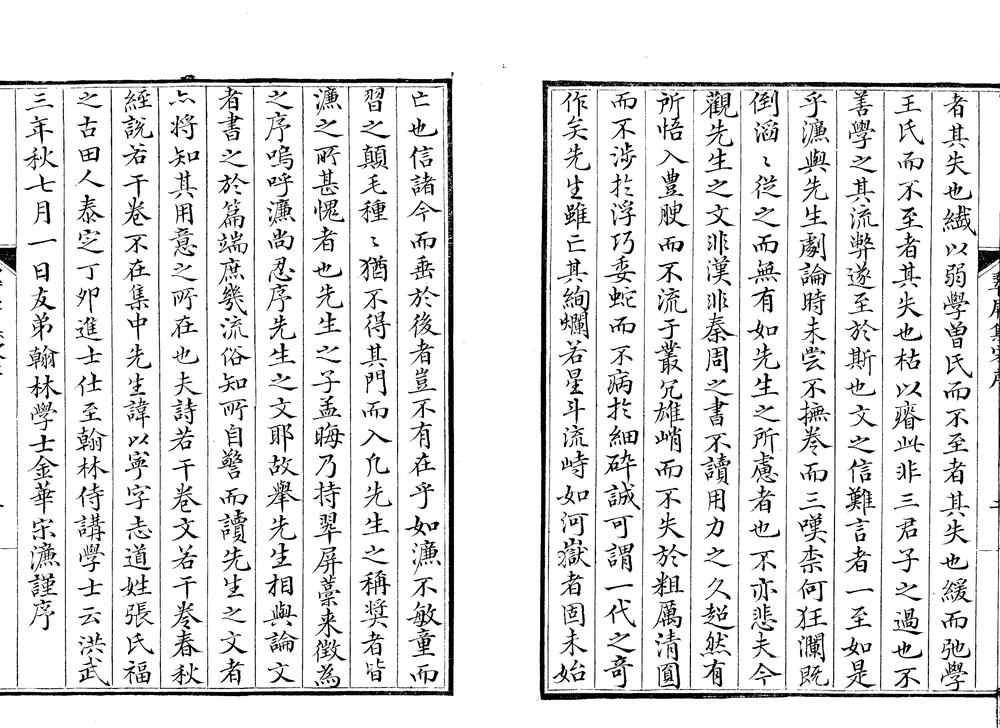 者其失也纎以弱學曽氏而不至者其失也緩而弛學
王氏而不至者其失也枯以瘠此非三君子之過也不
善學之其流弊遂至於斯也文之信難言者一至如是
乎濂與先生劇論時未嘗不撫巻而三嘆柰何狂瀾既
倒滔〻從之而無有如先生之所慮者也不亦悲夫今
觀先生之文非漢非秦周之書不讀用力之久超然有
所悟入豊腴而不流于叢冗雄峭而不失於粗厲清圓
而不涉於浮巧委蛇而不病於細碎誠可謂一代之竒
作矣先生雖亡其絢爛若星斗流峙如河嶽者固未始
亡也信諸今而垂於後者豈不有在乎如濂不敏童而
習之顛毛種〻猶不得其門而入凢先生之稱奨者皆
濂之所甚愧者也先生之子孟晦乃持翠屏藁来徴為
之序嗚呼濂尚忍序先生之文耶故舉先生相與論文
者書之於篇端庶幾流俗知所自警而讀先生之文者
亦將知其用意之所在也夫詩若干巻文若干巻春秋
經說若干巻不在集中先生諱以寧字志道姓張氏福
之古田人泰定丁夘進士仕至翰林侍講學士云洪武
三年秋七月一日友弟翰林學士金華宋濂謹序